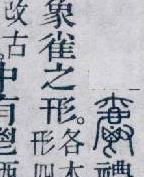 禮
象雀之形。各本
形四
改古
中有鬯